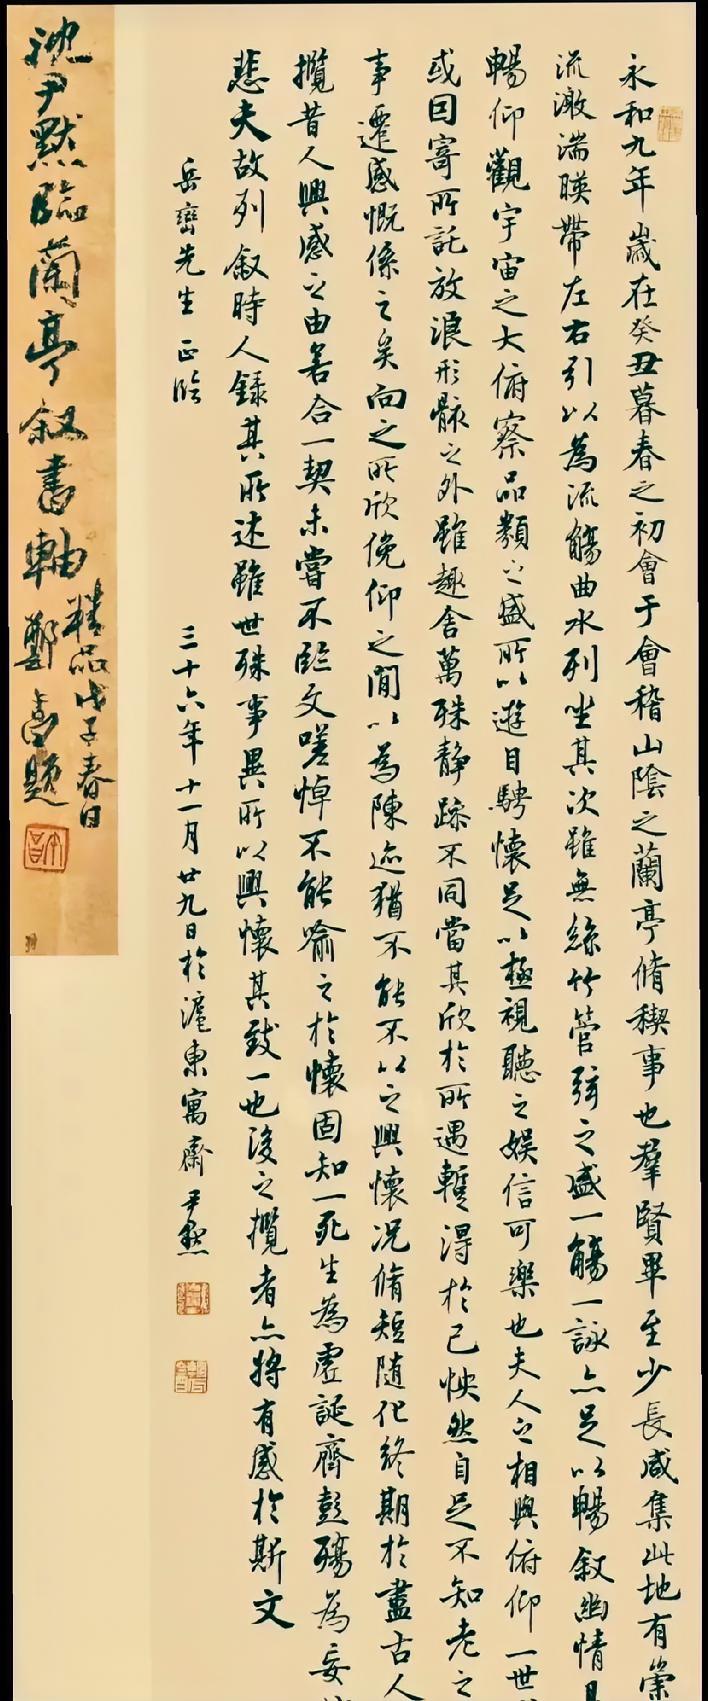 永和九年歲在癸丑暮春之初會于會稽山陰之蘭亭脩稧事也羣賢畢至少長咸集此地有崇
流激湍暎帶左右引以為流觴曲水列坐其次雖無絲竹管弦之盛一觴一詠亦足以暢叙幽情
暢仰觀宇宙之大俯察品類之盛所以遊目騁懷足以極視聽之娛信可樂也夫人之相與俯仰一世
或因寄所託放浪形骸之外雖趣舍萬殊靜躁不同當其欣於所遇蹔得於己怏然自足不知老之
事遷感慨係之矣向之所欣俛仰之閒以為陳迹猶不能不以之興懷況脩短隨化終期於盡古人
攬昔人興感之由若合一契未嘗不臨文嗟悼不能喻之於懷固知一死生為虛誕齊彭殤為妄
悲夫故列叙時人錄其所述雖世殊事異所以興懷其致一也後之攬者亦將有感於斯文
岳巒先生正臨
三十六年十一月廿九日於滬東寓齋尹默
沈尹默臨蘭亭叙書軸
精品戊子春日
鄭
題